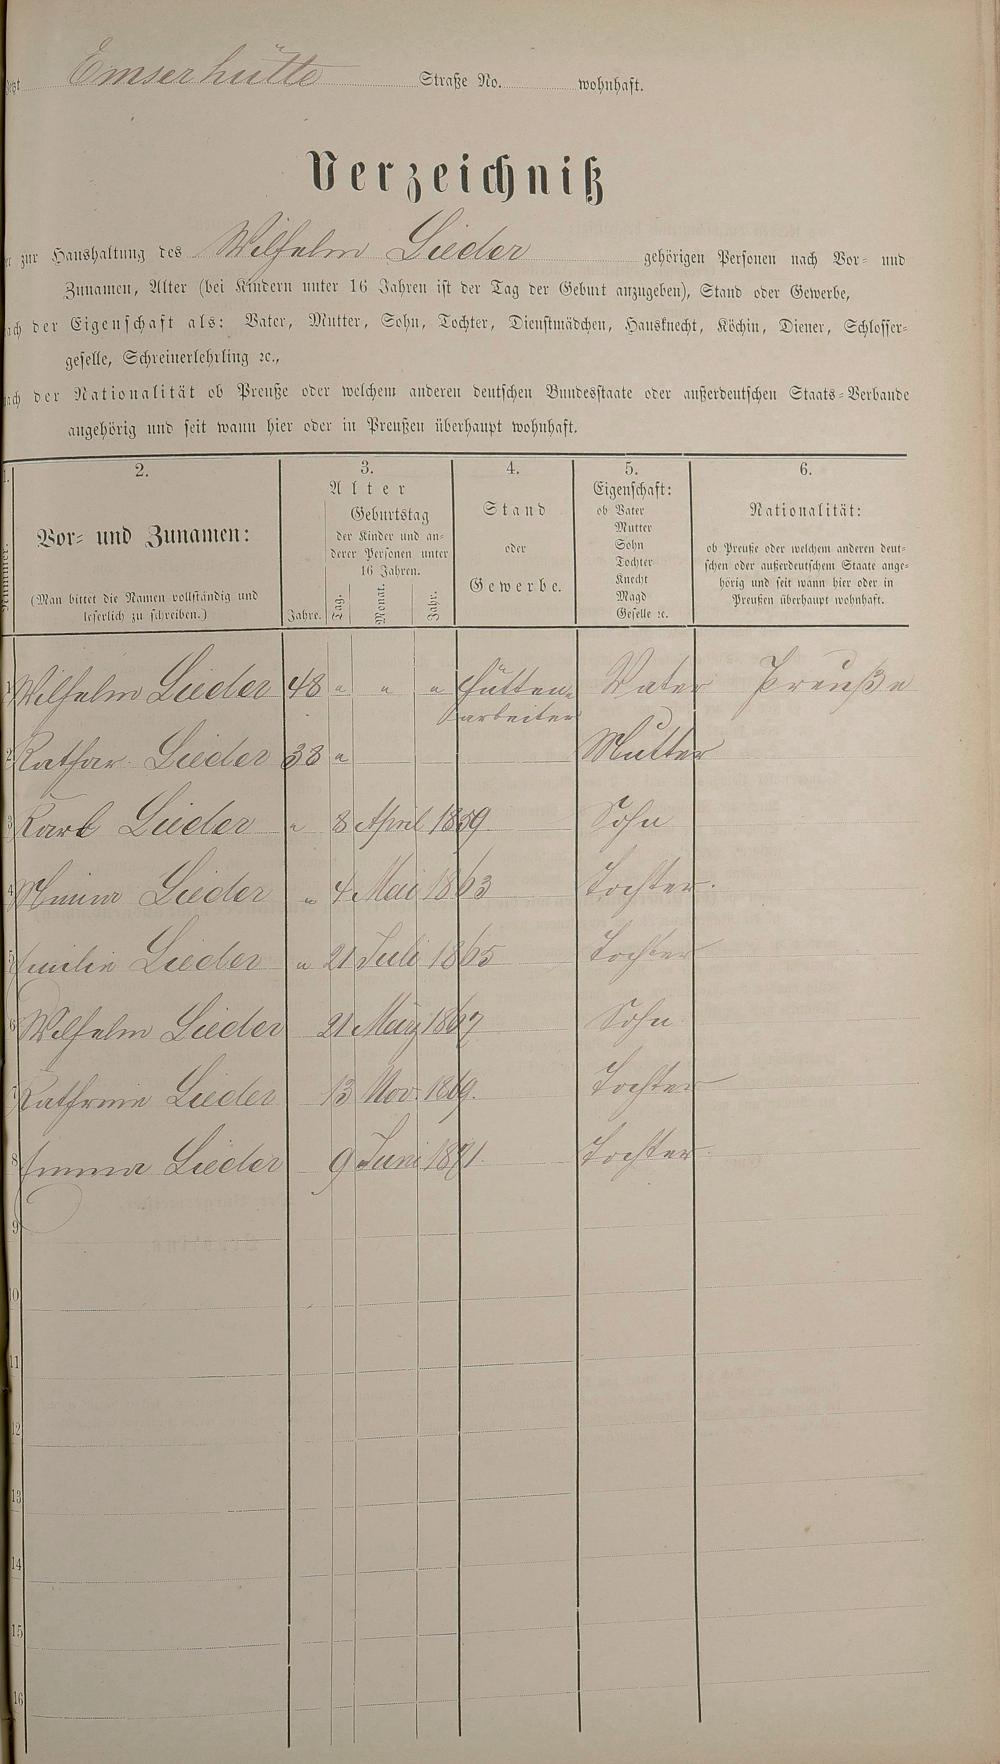 Emserhütte Straße No. wohnhaft.
Verzeichniß
zur Haushaltung des Wilhelm Lieder gehörigen Personen nach Vor- und
Zunamen, Alter (bei Kindern unter 16 Jahren ist der Tag der Geburt anzugeben), Stand oder Gewerbe,
nach der Eigenschaft als: Vater, Mutter, Sohn, Tochter, Dienstmädchen, Hausknecht, Köchin, Diener, Schlosser-
geselle, Schreinerlehrling ꝛc.,
nach der Nationalität ob Preuße oder welchem anderen deutschen Bundesstaate oder außerdeutschen Staats-Verbande
angehörig und seit wann hier oder in Preußen überhaupt wohnhaft.
1. 2. 3. 4. 5. 6.
Nummer.
Vor- und Zunamen:
(Man bittet die Namen vollständig und
leserlich zu schreiben.)
Alter
Jahre.
Geburtstag
der Kinder und an-
derer Personen unter
16 Jahren.
Tag. Monat. Jahr.
Stand
oder
Gewerbe.
Eigenschaft:
ob Vater
Mutter
Sohn
Tochter
Knecht
Magd
Geselle ꝛc.
Nationalität:
ob Preuße oder welchem anderen deut-
schen oder außerdeutschem Staate ange-
hörig und seit wann hier oder in
Preußen überhaupt wohnhaft.
1 Wilhelm Lieder 48 " " " Hütten- Vater Preuße
arbeiter
2 Kathar. Lieder 38 " Mutter
3 Karl Lieder " 8 April 1859 Sohn
4 Minna Lieder " 4 Mai 1863 Tochter.
5 Emilie Lieder " 21 Juli 1865 Tochter
6 Wilhelm Lieder 21 März 1867 Sohn
7 Kathrine Lieder 13 Nov. 1869. Tochter
8 Emma Lieder 9 Juni 1871. Tochter.
9
10
11
12
13
14
15
16